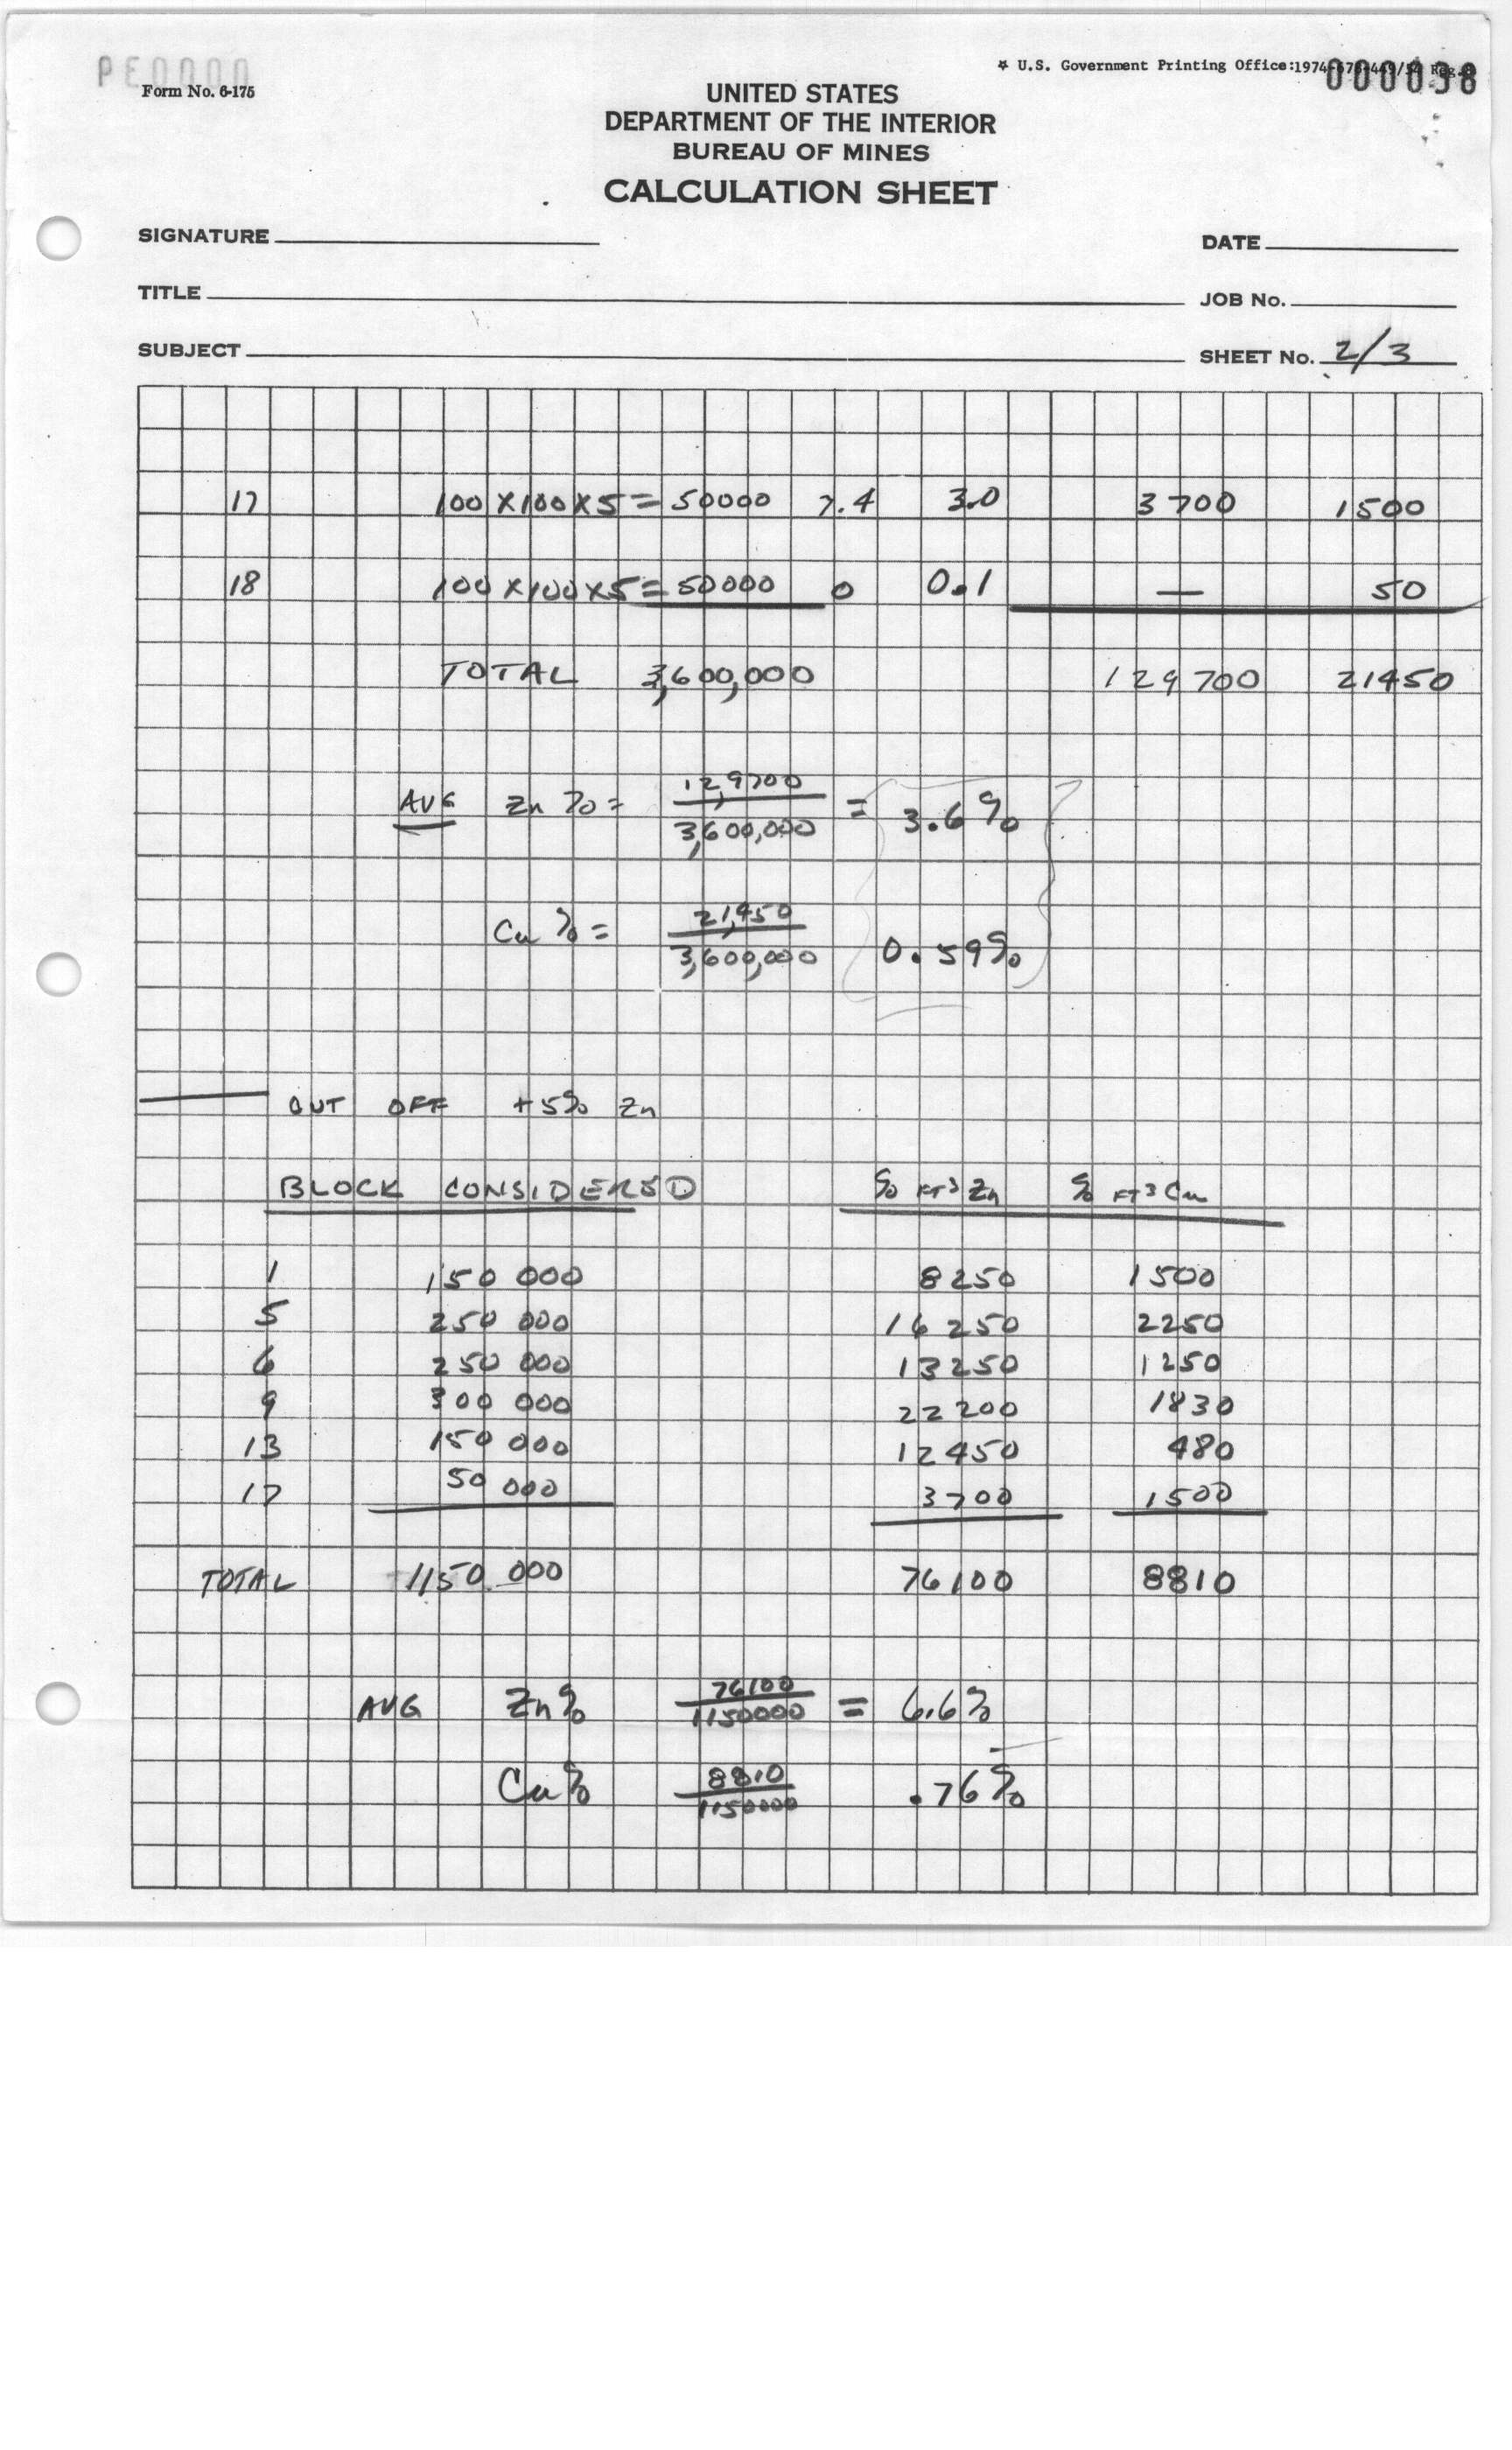 PE0000
Form No. 6-175
☆ U.S. Government Printing Office:1974
000038
UNITED STATES
DEPARTMENT OF THE INTERIOR
BUREAU OF MINES
CALCULATION SHEET
SIGNATURE
DATE
TITLE
JOB No.
SUBJECT
SHEET No. 2/3
17 100 X 100 X 5 = 50000 7.4 3.0 3700 1500
18 100 X 100 X 5 = 50000 0 0.1 — 50
TOTAL 3,600,000 129700 21450
AVG Zn % = 12,9700 / 3,600,000 = 3.6%
Cu % = 21,450 / 3,600,000 0.59%
CUT OFF +5% Zn
BLOCK CONSIDERED % FT3 Zn % FT3 Cu
1 150 000 8250 1500
5 250 000 16 250 2250
6 250 000 13250 1250
9 300 000 22 200 1830
13 150 000 12450 480
17 50 000 3700 1500
TOTAL 1150 000 76100 8810
AVG Zn% 76100 / 1150000 = 6.6%
Cu% 8810 / 1150000 .76%